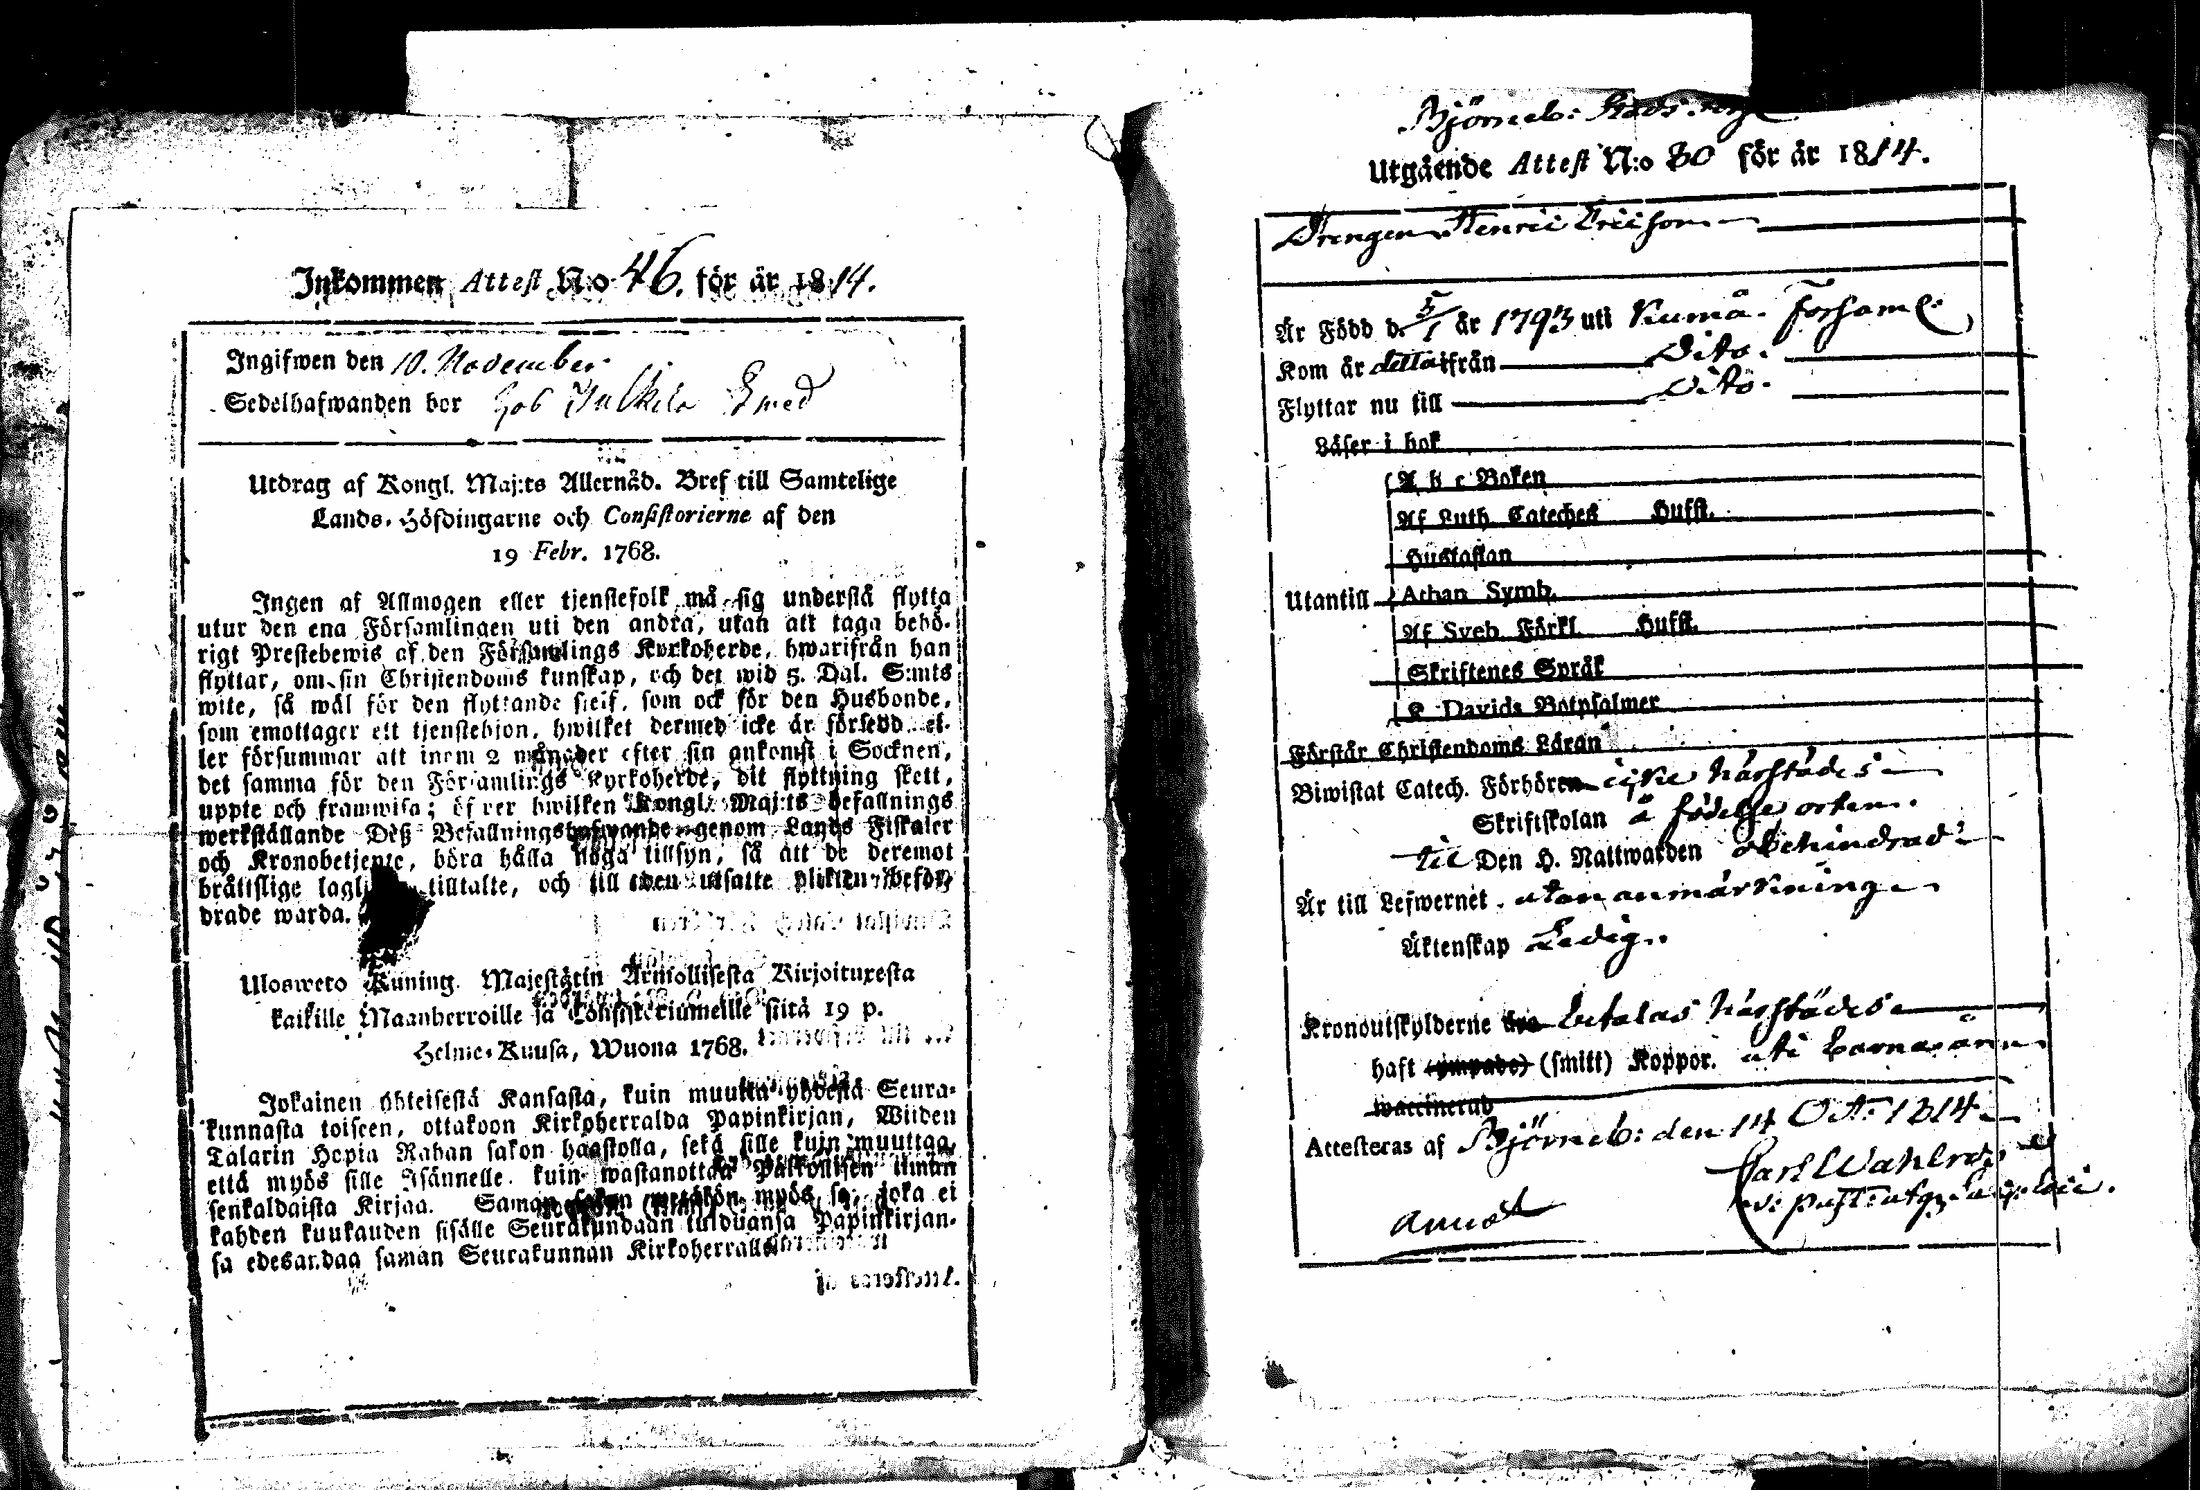 Inkommen Attest N:o 46. för år 1814.
Ingifwen den 10. November
Sedelhafwanden bor hos Smed
Utdrag af Kongl. Maj:ts Allernåd. Bref till Samtelige
Lands-Höfdingarne och Consistorierne af den
19 Febr. 1768.
Ingen af Allmogen eller tjenstefolk må sig understå flytta
utur den ena Församlingen uti den andra, utan att taga behö-
rigt Prestebewis af den Församlings Kyrkoherde, hwarifrån han
flyttar, om sin Christendoms kunskap, och det wid 5. Dal. S:mts
wite, så wäl för den flyttande sielf, som ock för den Husbonde,
som emottager ett tjenstehjon, hwilket dermed icke är försedd el-
ler försummar att inom 2 månader efter sin ankomst i Socknen,
det samma för den Församlings Kyrkoherde, dit flyttning skett,
uppte och framwisa; öfwer hwilken Kongl. Maj:ts befallnings
werkställande Deß Befallningshafwande genom Lands Fiskaler
och Kronobetjente, böra hålla noga tillsyn, så att de deremot
bråttslige tilltalte, och till den utsatte plikten befor-
drade warda.
Ulosweto Kuning. Majestätin Armollisesta Kirjoituxesta
kaikille Maanherroille ja Consistoriumeille siitä 19 p.
Helme-Kuusa, Wuona 1768.
Jokainen yhteisestä Kansasta, kuin muutta yhdestä Seura-
kunnasta toiseen, ottakoon Kirkoherralda Papinkirjan, Wiiden
Talarin Hopia Rahan sakon haastolla, sekä sille kuin muuttaa,
että myös sille Isännelle kuin wastanottaa Palkollisen ilman
senkaldaista Kirjaa. Saman sakon wetäkön myös se, joka ei
kahden kuukauden sisälle Seurakundaan tulduansa Papinkirjan-
sa edesandaa saman Seurakunnan Kirkoherralle.
Björneb:
Utgående Attest N:o 30 för år 1814.
Drengen Henric Ericson
Är Född d. 5/1 år 1793 uti Kumå Forsaml:
Kom år detta ifrån Dito.
Flyttar nu till Dito.
Läser i bok
A b c Boken
Af Luth. Cateches Hufst.
Hustaflan
Utantill Athan Symb.
Af Sveb. Förkl. Hufst.
Skriftenes Språk
K. Davids Botpsalmer
Förstår Christendoms Läran
Biwistat Catech. Förhören icke härstädes
Skriftskolan å födelse orten.
til Den H. Nattwarden obehindrad
Är till Lefwernet utan anmärkning
Äktenskap Ledig.
Kronoutskylderne betalas härstädes
haft (ympade) (smitt) Koppor. uti barna åren
waccinerad
Attesteras af Björneb: den 14 Oct. 1814
Carl